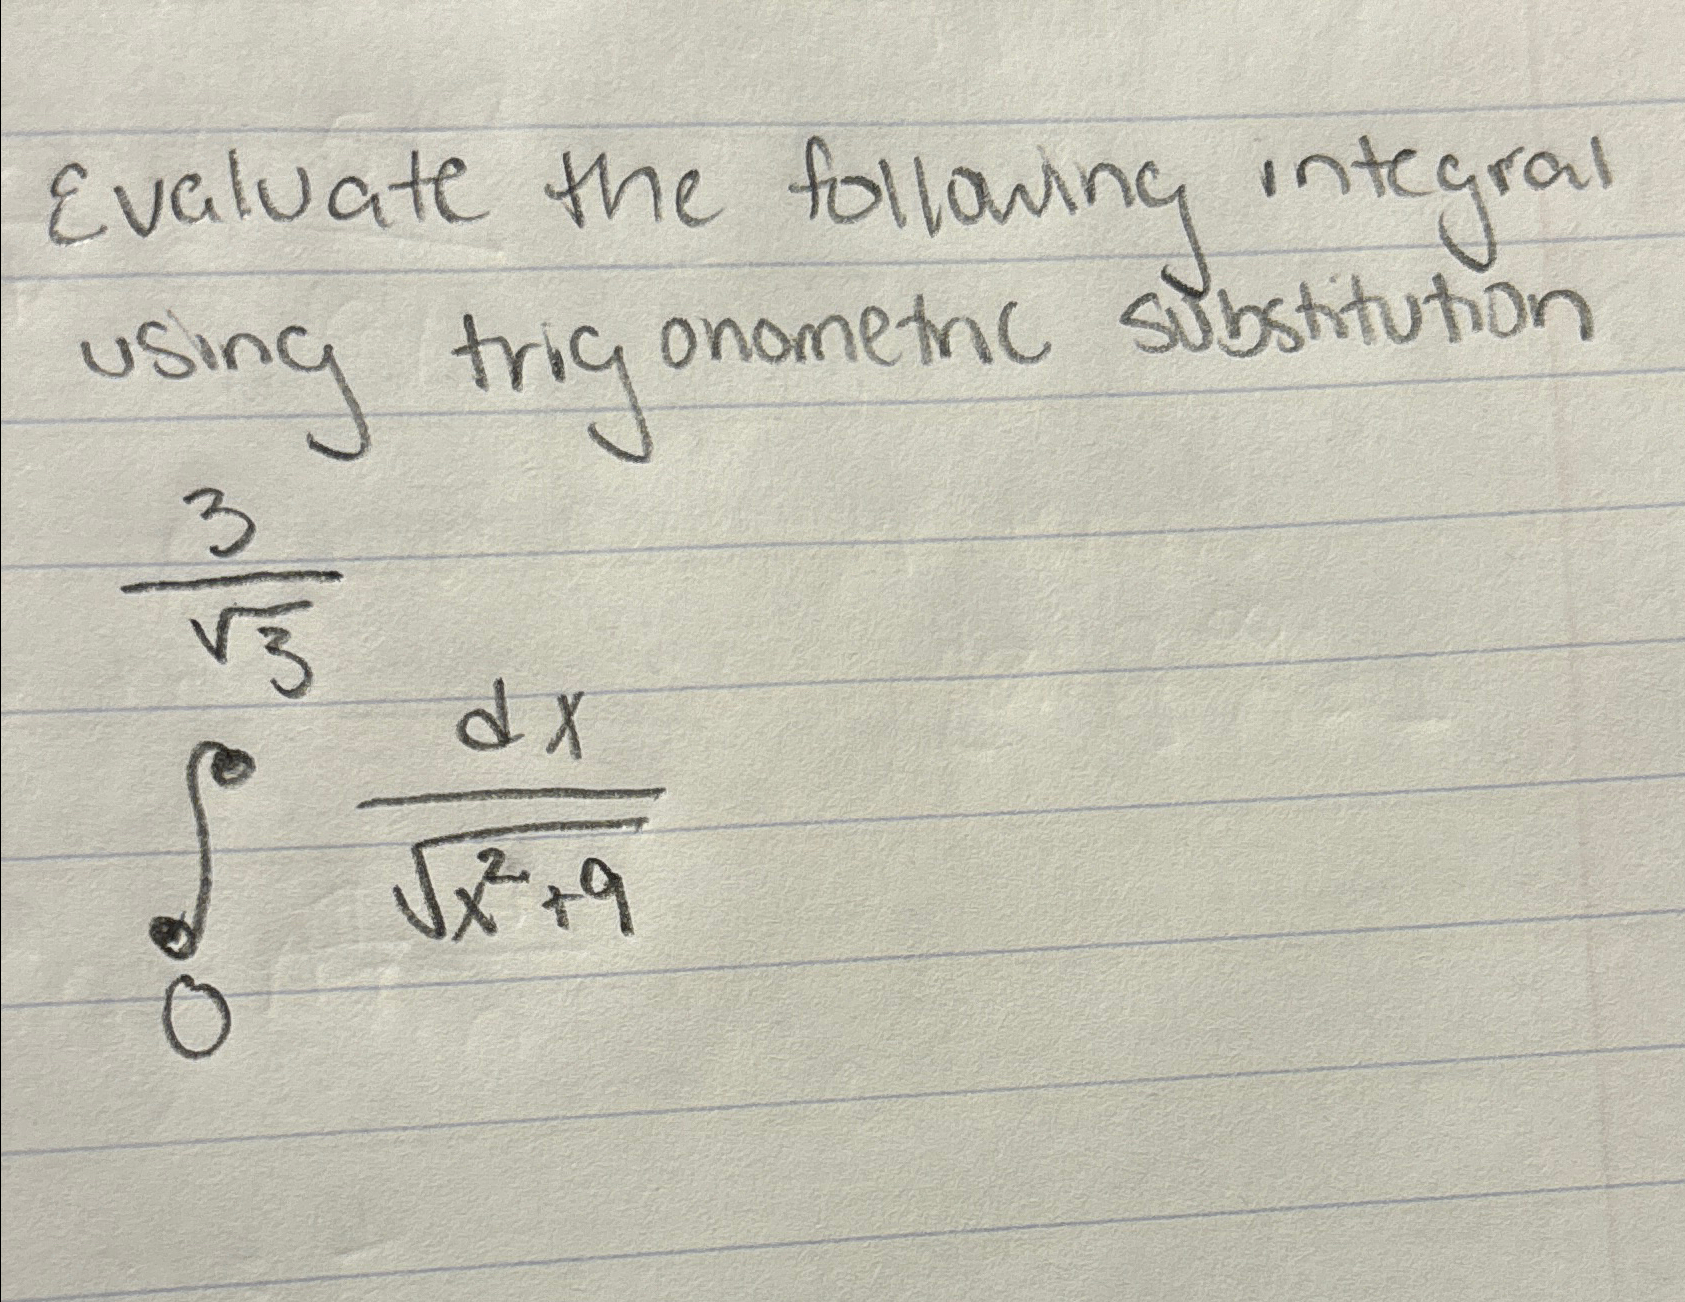 Evaluate the following integral
using trigonometric substitution
3
√3
dx
∫
√x²+9
0